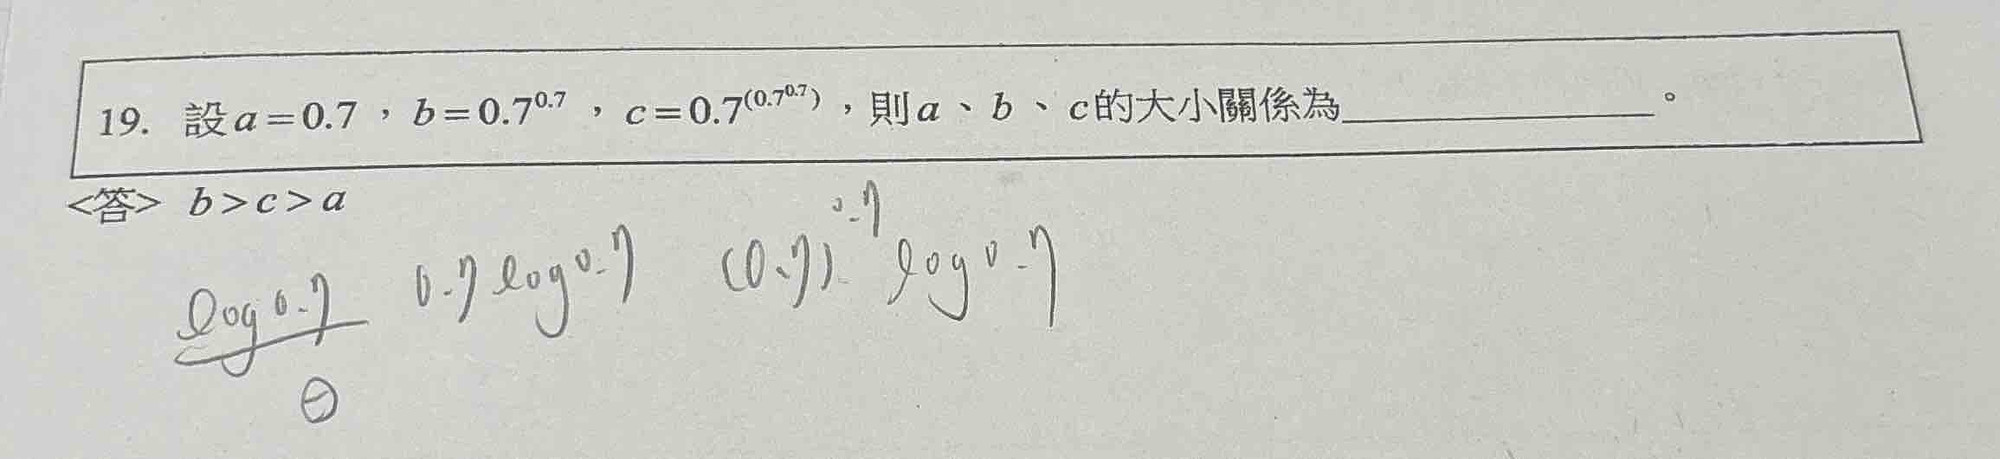 19. 設a=0.7，b=0.7^0.7，c=0.7^(0.7^0.7)，則a、b、c的大小關係為＿＿＿＿＿＿。
<答> b>c>a
log0.7 0.7log0.7 (0.7)^0.7 log0.7
⊖